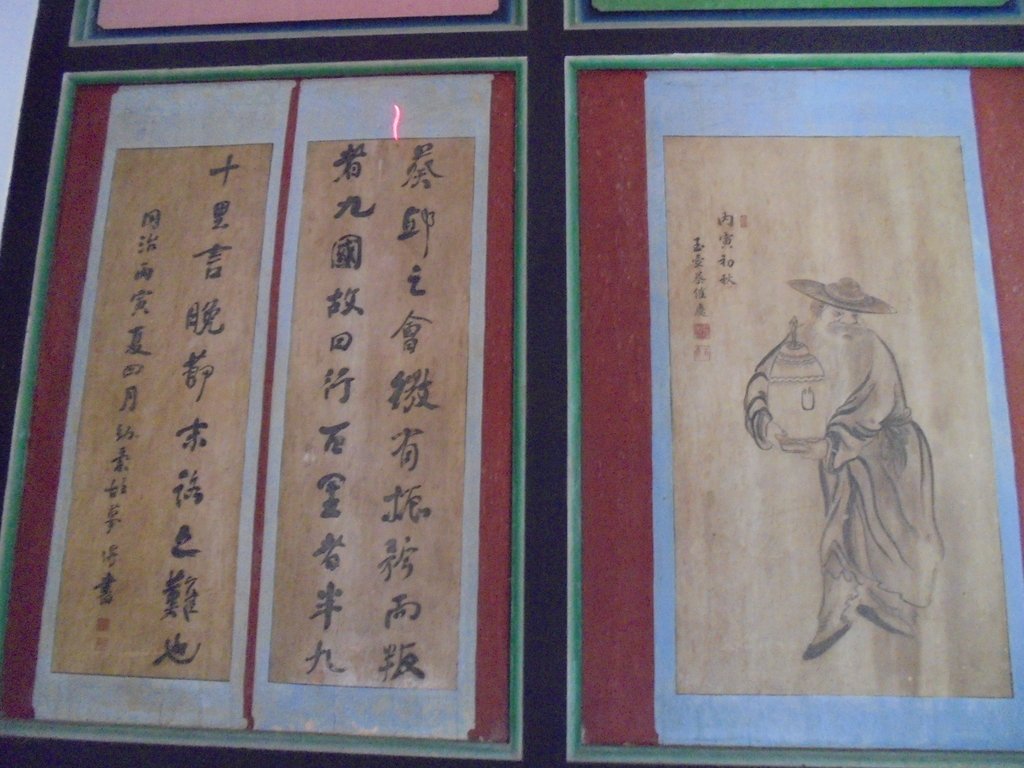 葵邱之會微有振矜而叛
者九國故曰行百里者半九
十里言晚節末路之難也
同治丙寅夏四月
書
丙寅初秋